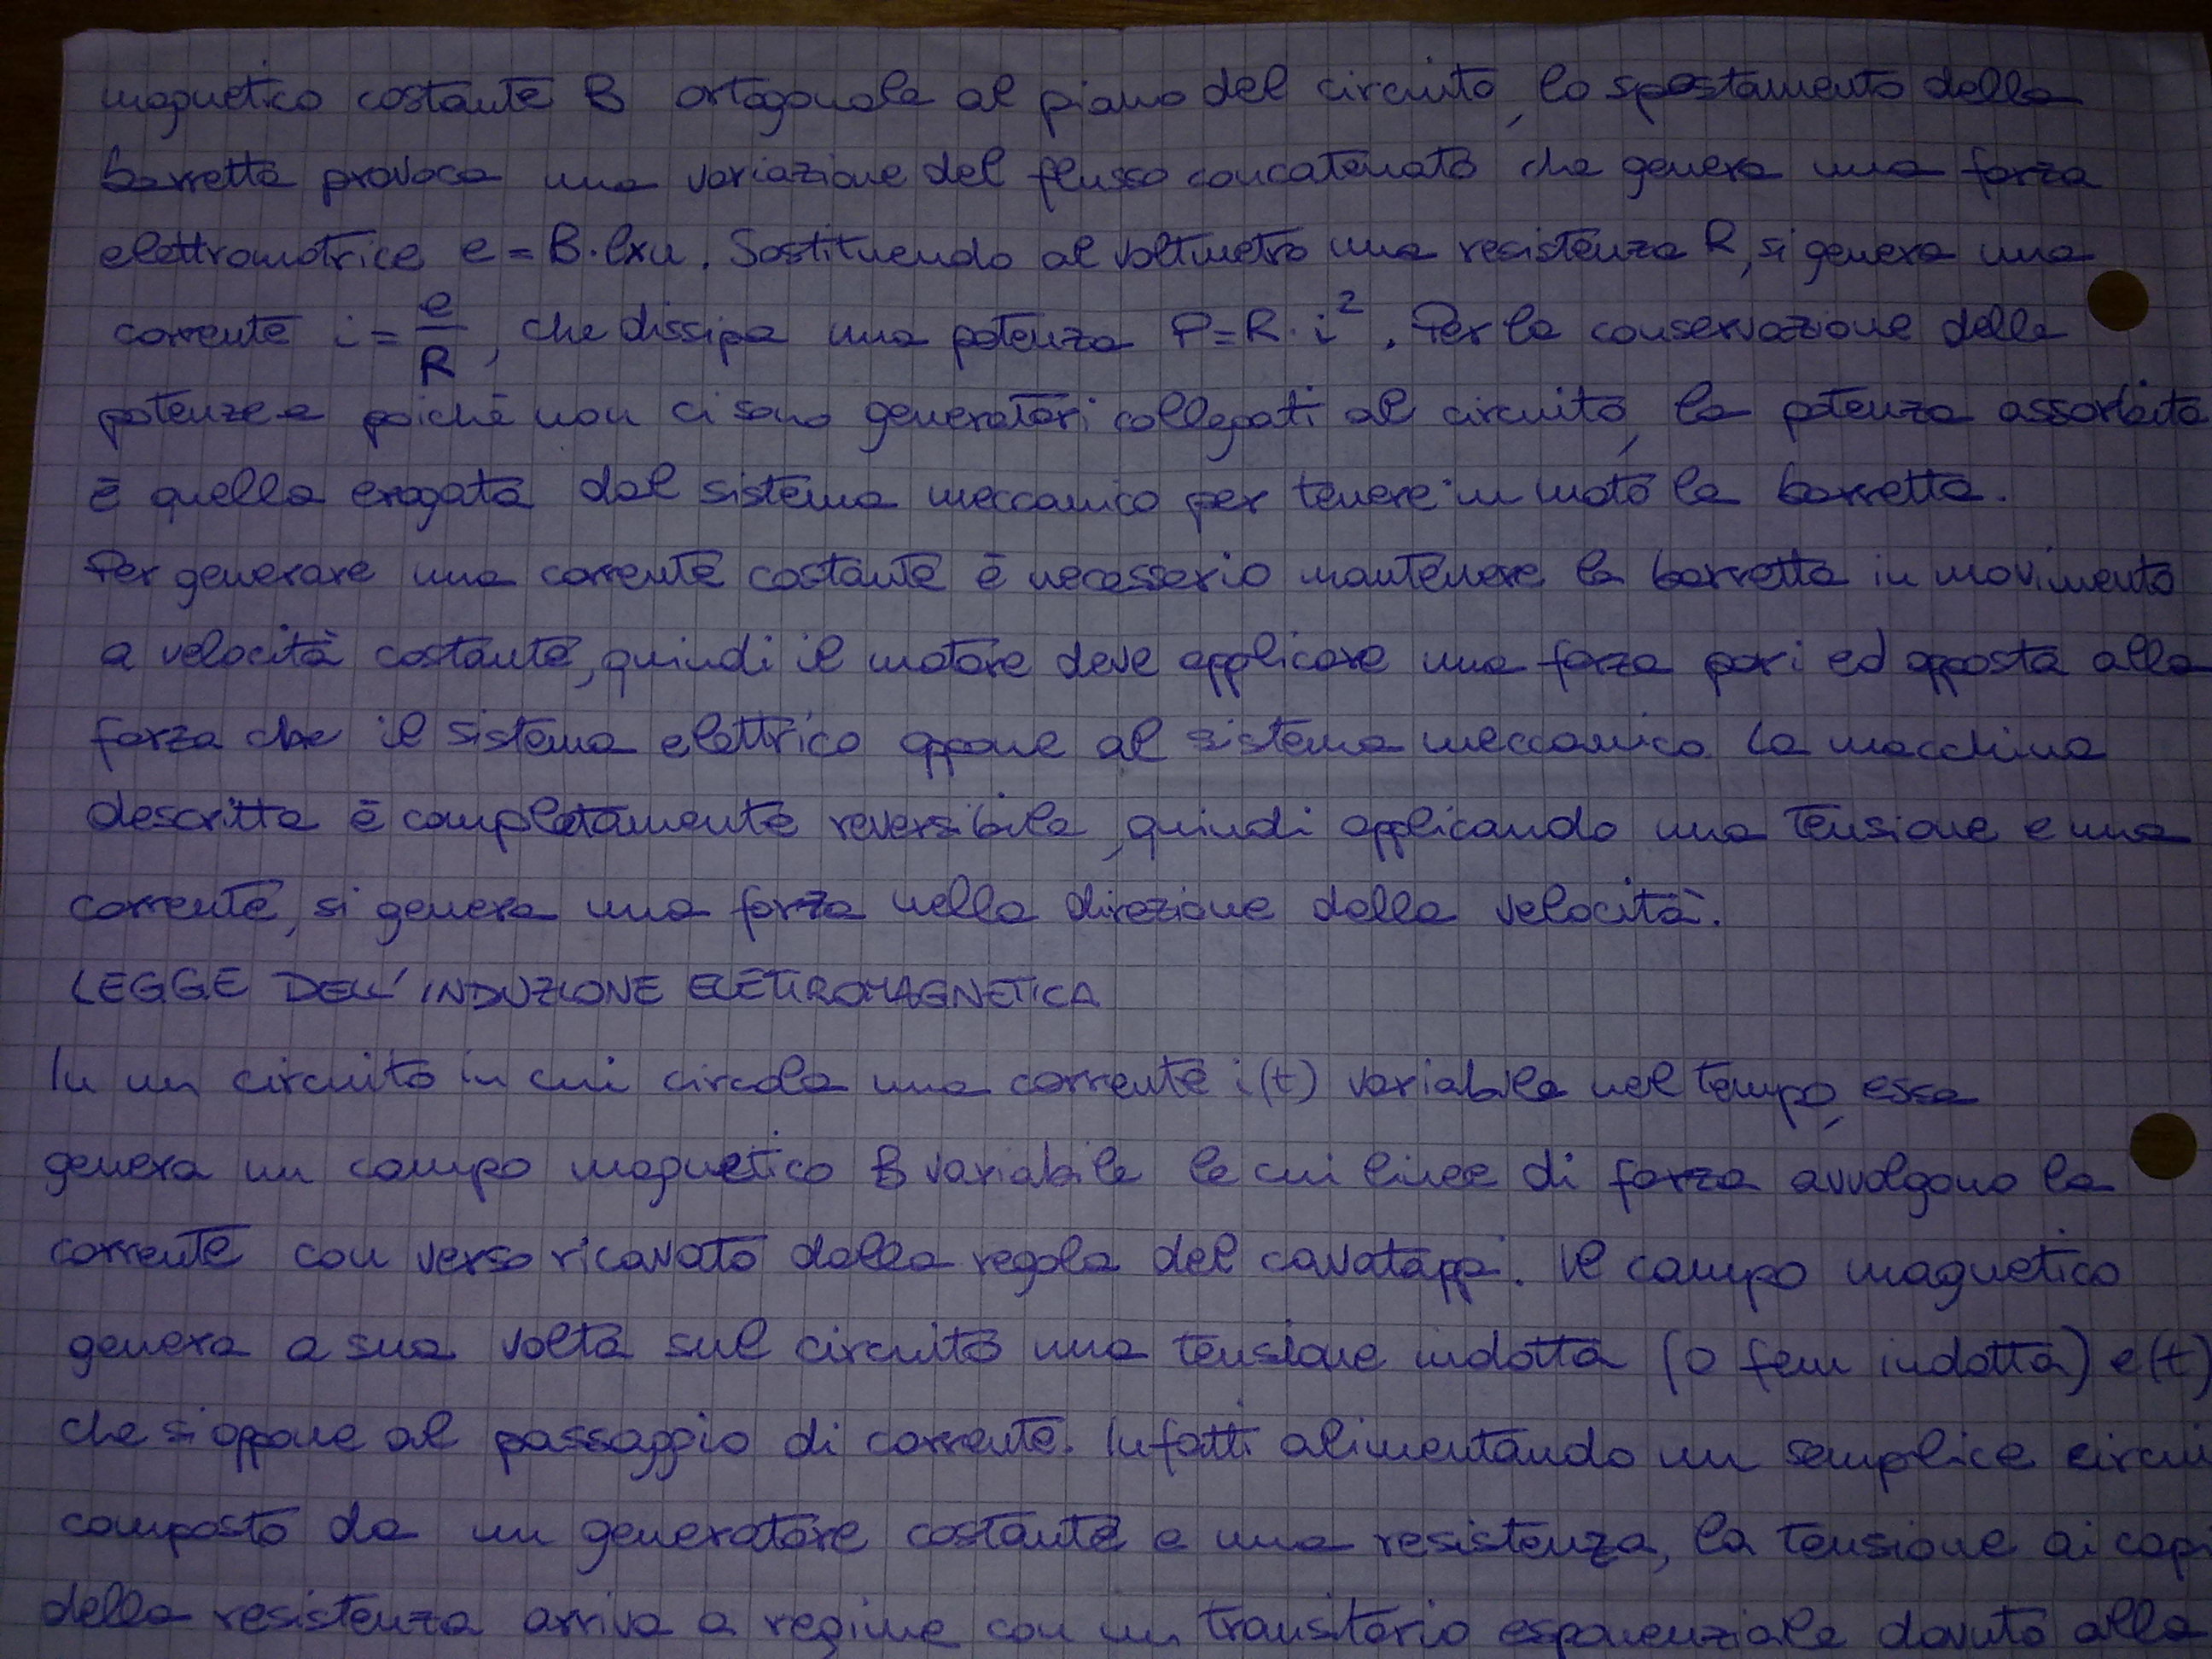 magnetico costante B ortogonale al piano del circuito, lo spostamento della
barretta provoca una variazione del flusso concatenato che genera una forza
elettromotrice e = B·l×u. Sostituendo al voltmetro una resistenza R, si genera una
corrente i = e/R, che dissipa una potenza P = R·i². Per la conservazione delle
potenze e poiché non ci sono generatori collegati al circuito, la potenza assorbita
è quella erogata dal sistema meccanico per tenere in moto la barretta.
Per generare una corrente costante è necessario mantenere la barretta in movimento
a velocità costante, quindi il motore deve applicare una forza pari ed opposta alla
forza che il sistema elettrico oppone al sistema meccanico. La macchina
descritta è completamente reversibile, quindi applicando una tensione e una
corrente, si genera una forza nella direzione della velocità.
LEGGE DELL'INDUZIONE ELETTROMAGNETICA
In un circuito in cui circola una corrente i(t) variabile nel tempo, essa
genera un campo magnetico B variabile le cui linee di forza avvolgono la
corrente con verso ricavato dalla regola del cavatappi. Il campo magnetico
genera a sua volta sul circuito una tensione indotta (o fem indotta) e(t)
che si oppone al passaggio di corrente. Infatti alimentando un semplice circui
composto da un generatore costante e una resistenza, la tensione ai capi
della resistenza arriva a regime con un transitorio esponenziale dovuto alla